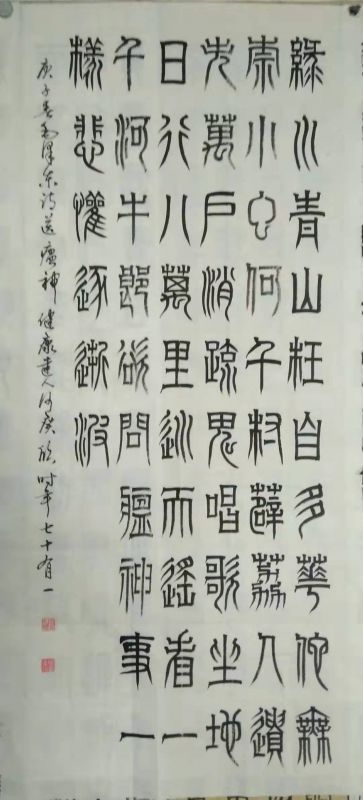 綠水青山枉自多華佗無
奈小虫何千村薜荔人遺
矢萬戶消疏鬼唱歌坐地
日行八萬里巡天遙看一
千河牛郎欲問瘟神事一
樣悲懽逐逝波
庚子春毛泽东诗送瘟神 健康達人 时年七十有一